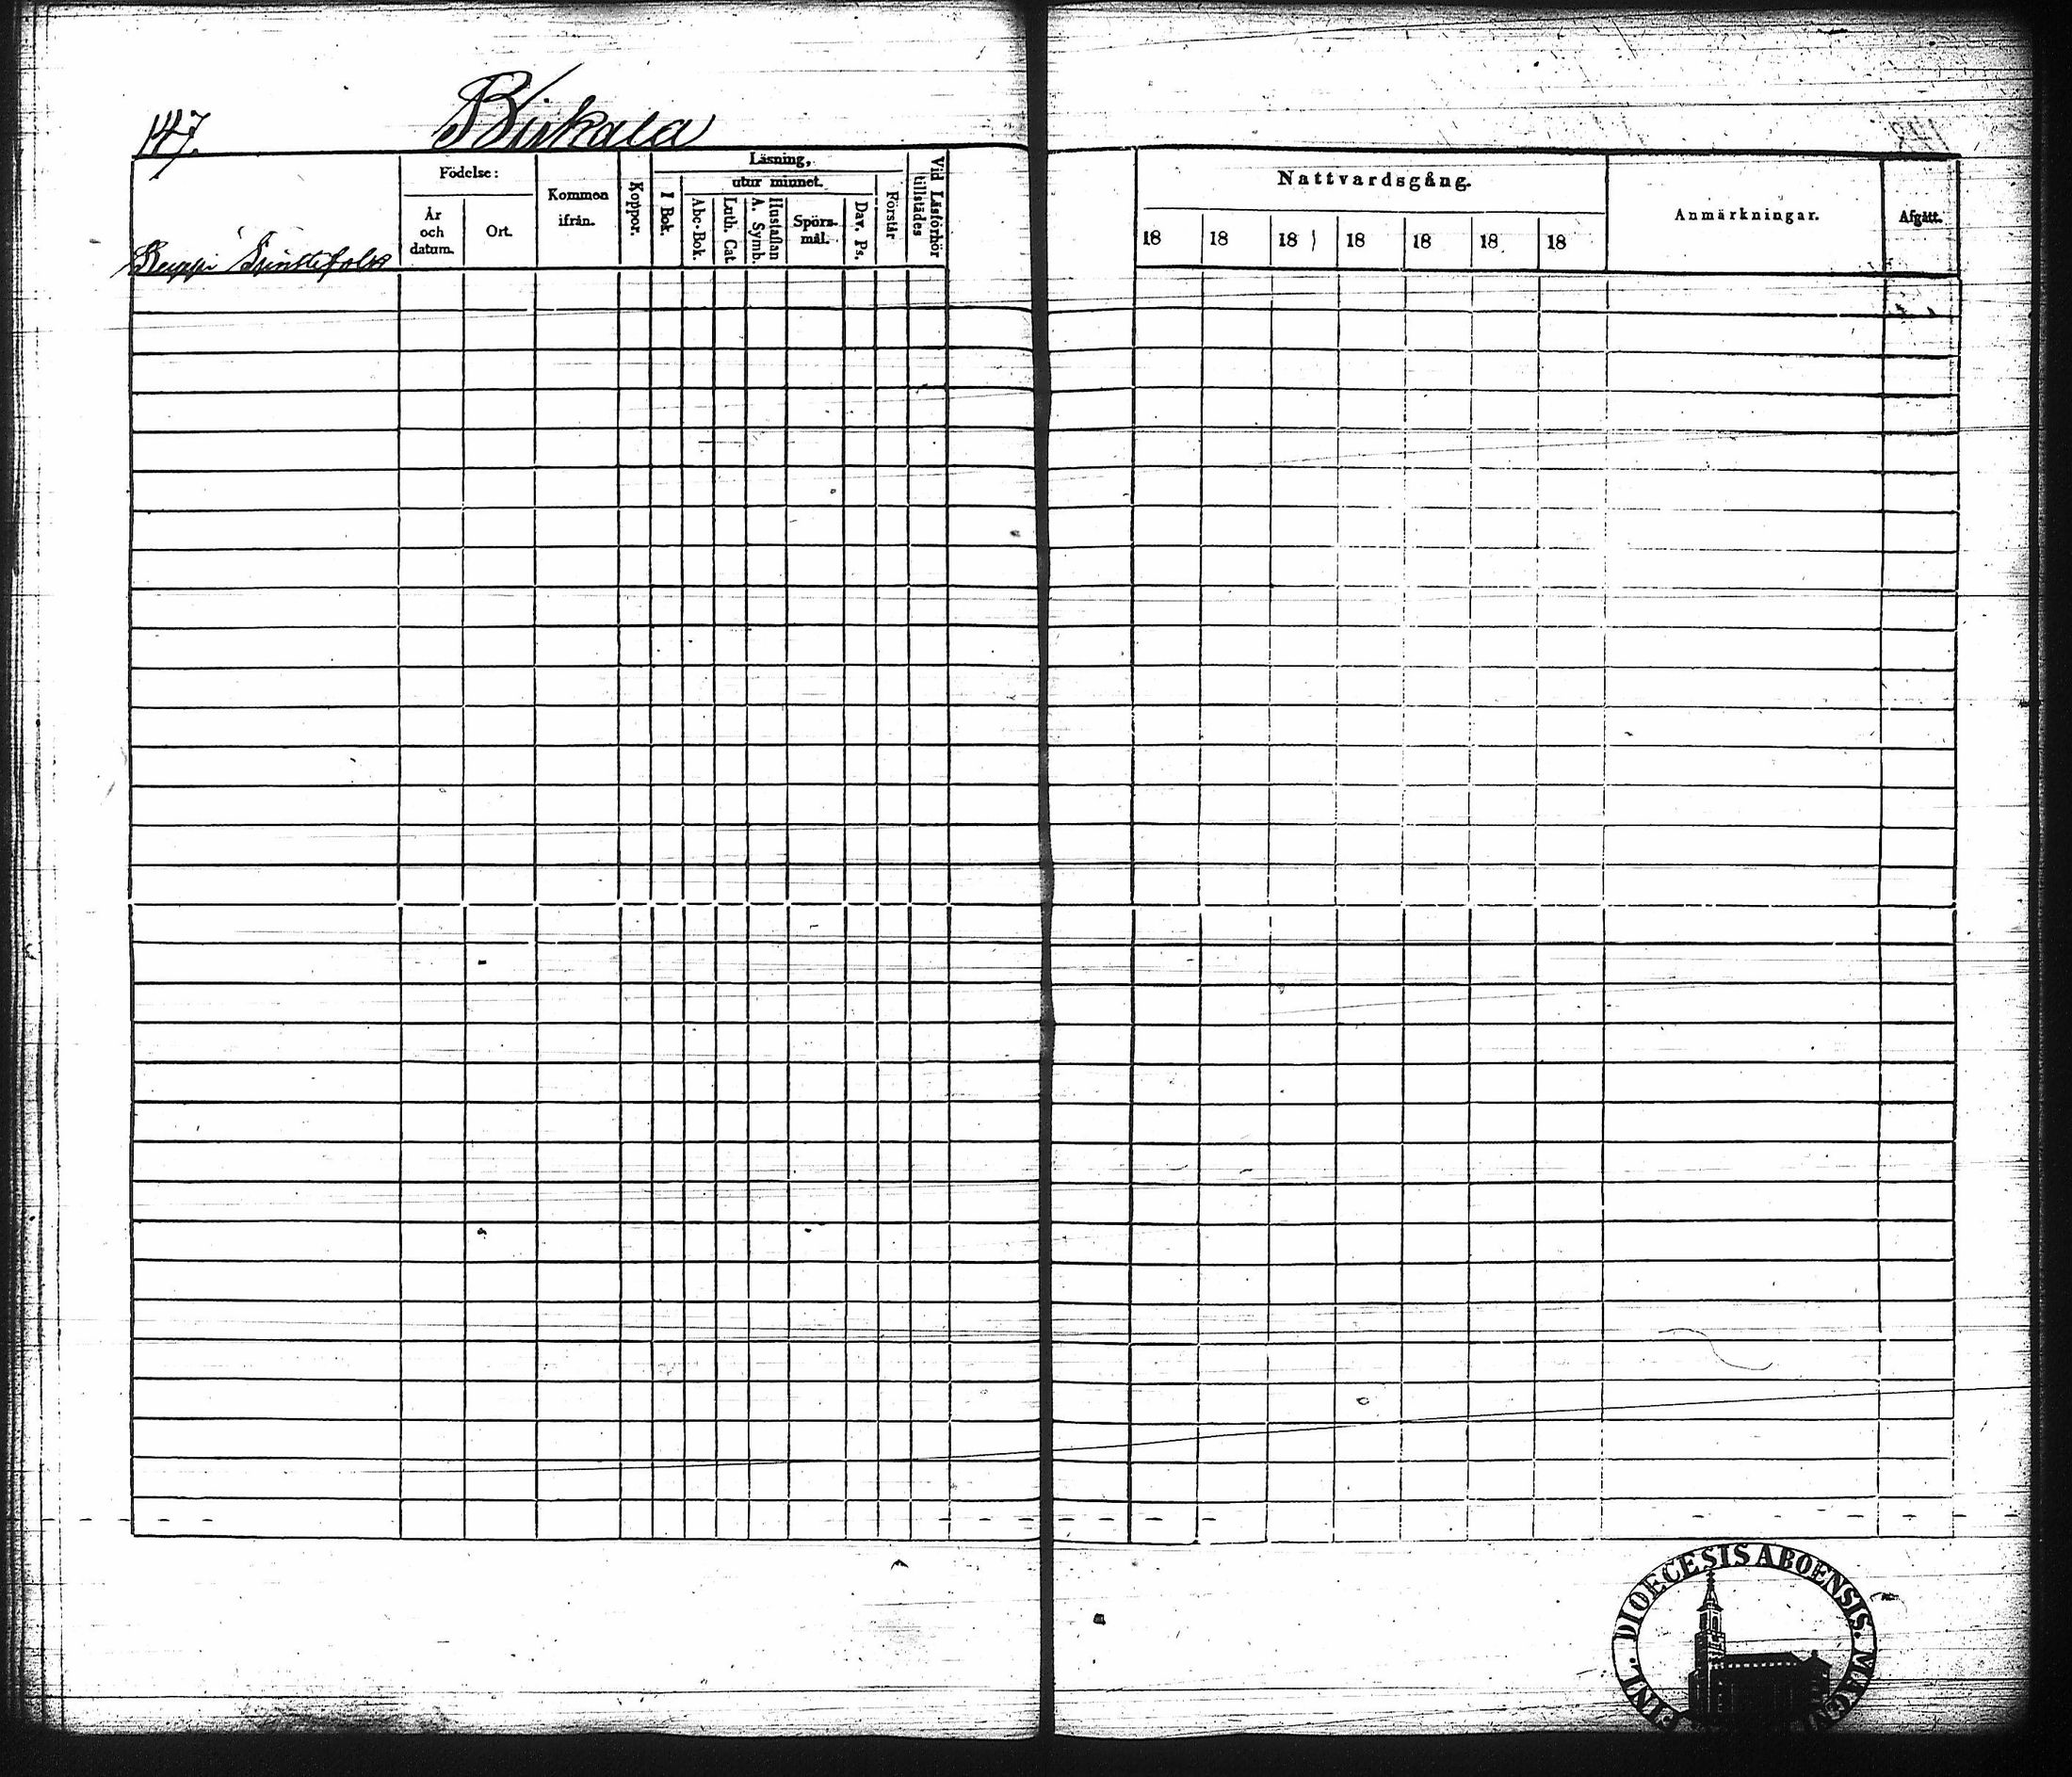 147.
Birkala
Födelse:
År och datum.
Ort.
Kommen ifrån.
Koppor.
Läsning,
utur minnet.
I Bok.
Abc-Bok.
Luth. Cat.
Hustaflan A. Symb.
Spörs-mål.
Dav. Ps.
Förstår
Vid Läsförhör tillstädes
Nattvardsgång.
18 18 18 18 18 18 18
Anmärkningar.
Afgått.
FINL. DIOECESIS ABOENSIS.